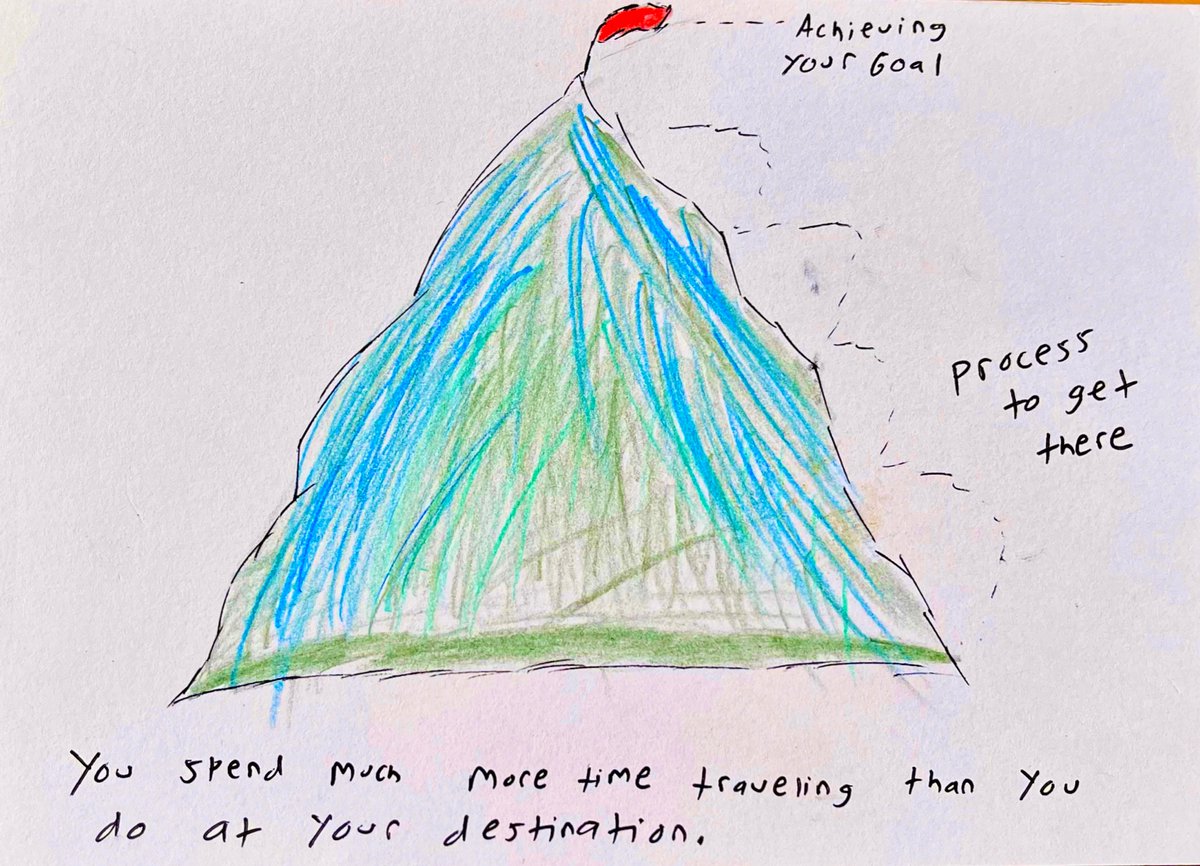 Achieving
Your Goal
process
to get
there
You spend much more time traveling than You
do at your destination.